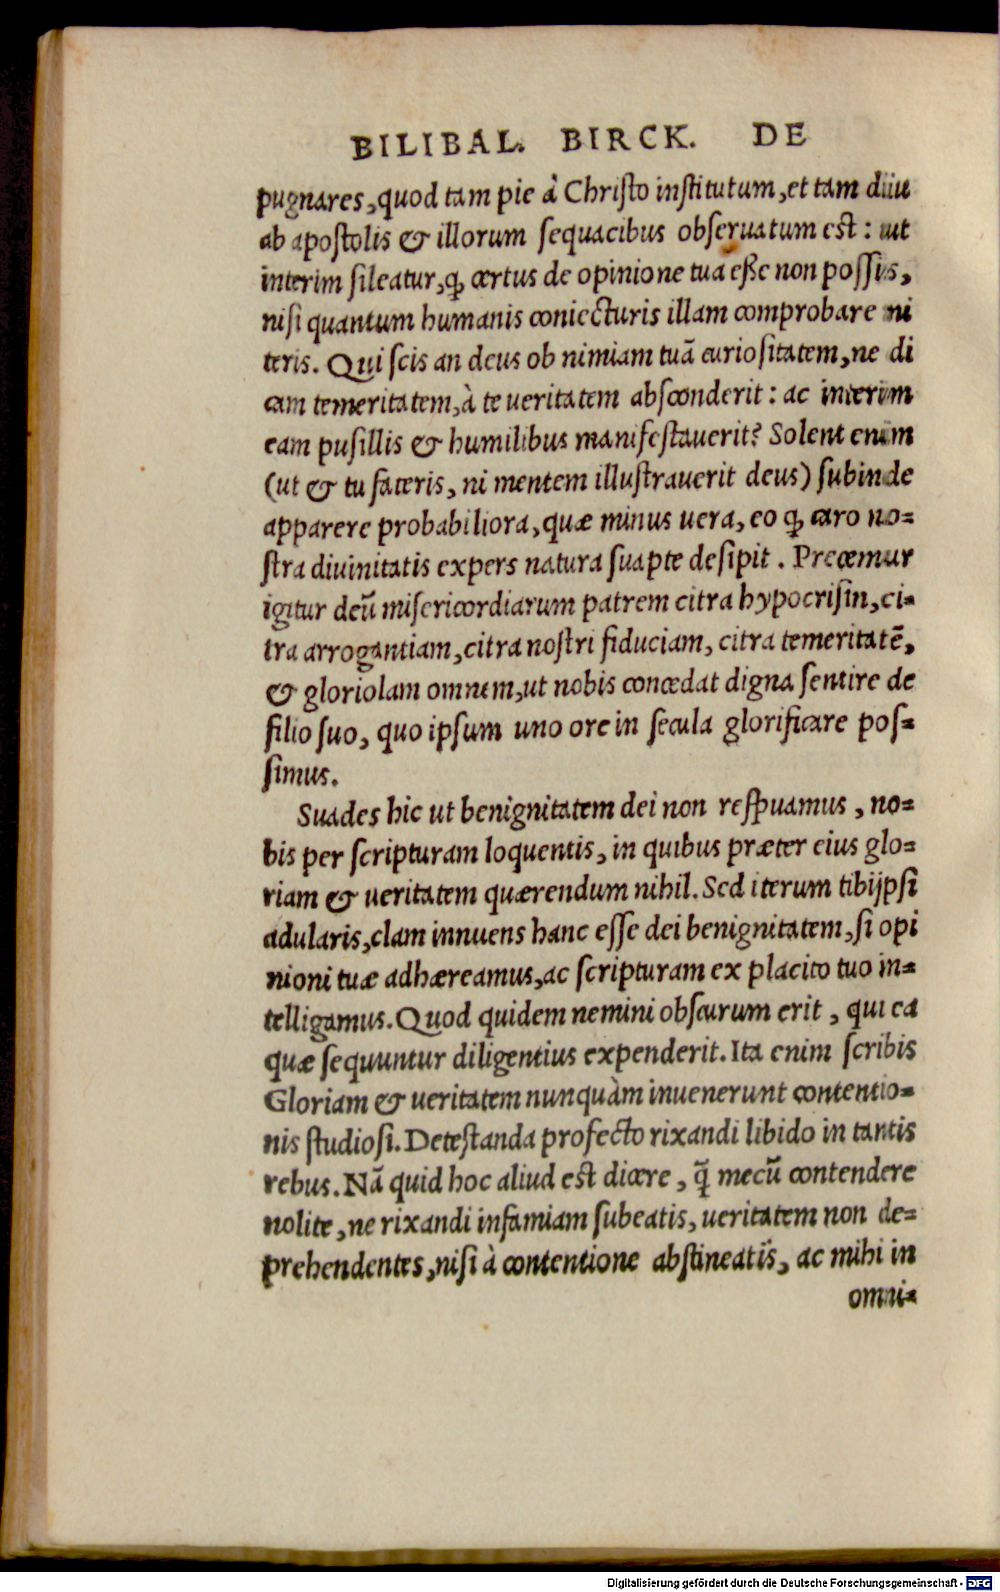 BILIBAL. BIRCK. DE
pugnares, quod tam pie à Christo institutum, et tam diu
ab apostolis & illorum sequacibus obseruatum est: ut
interim sileatur, ꝙ certus de opinione tua esse non possis,
nisi quantum humanis coniecturis illam comprobare ni
teris. Qui scis an deus ob nimiam tuā curiositatem, ne di
cam temeritatem, à te ueritatem absconderit: ac interim
eam pusillis & humilibus manifestauerit? Solent enim
(ut & tu fateris, ni mentem illustrauerit deus) subinde
apparere probabiliora, quæ minus uera, eo ꝙ caro no-
stra diuinitatis expers natura suapte desipit. Precemur
igitur deū misericordiarum patrem citra hypocrisin, ci-
tra arrogantiam, citra nostri fiduciam, citra temeritatē,
& gloriolam omnem, ut nobis concedat digna sentire de
filio suo, quo ipsum uno ore in secula glorificare pos-
simus.
Suades hic ut benignitatem dei non respuamus, no-
bis per scripturam loquentis, in quibus præter eius glo-
riam & ueritatem quærendum nihil. Sed iterum tibijpsi
adularis, clam innuens hanc esse dei benignitatem, si opi
nioni tuæ adhæreamus, ac scripturam ex placito tuo in-
telligamus. Quod quidem nemini obscurum erit, qui ea
quæ sequuntur diligentius expenderit. Ita enim scribis
Gloriam & ueritatem nunquàm inuenerunt contentio-
nis studiosi. Detestanda profecto rixandi libido in tantis
rebus. Nā quid hoc aliud est dicere, q̄ mecū contendere
nolite, ne rixandi infamiam subeatis, ueritatem non de-
prehendentes, nisi à contentione abstineatis, ac mihi in
omni-
Digitalisierung gefördert durch die Deutsche Forschungsgemeinschaft - DFG